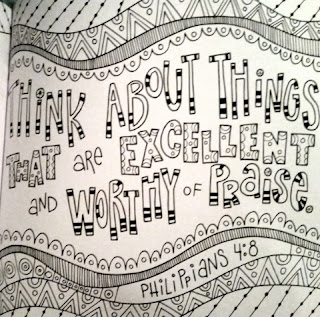 THINK ABOUT THINGS
THAT are EXCELLENT
AND WORTHY OF PRAISE.
PHILIPPIANS 4:8